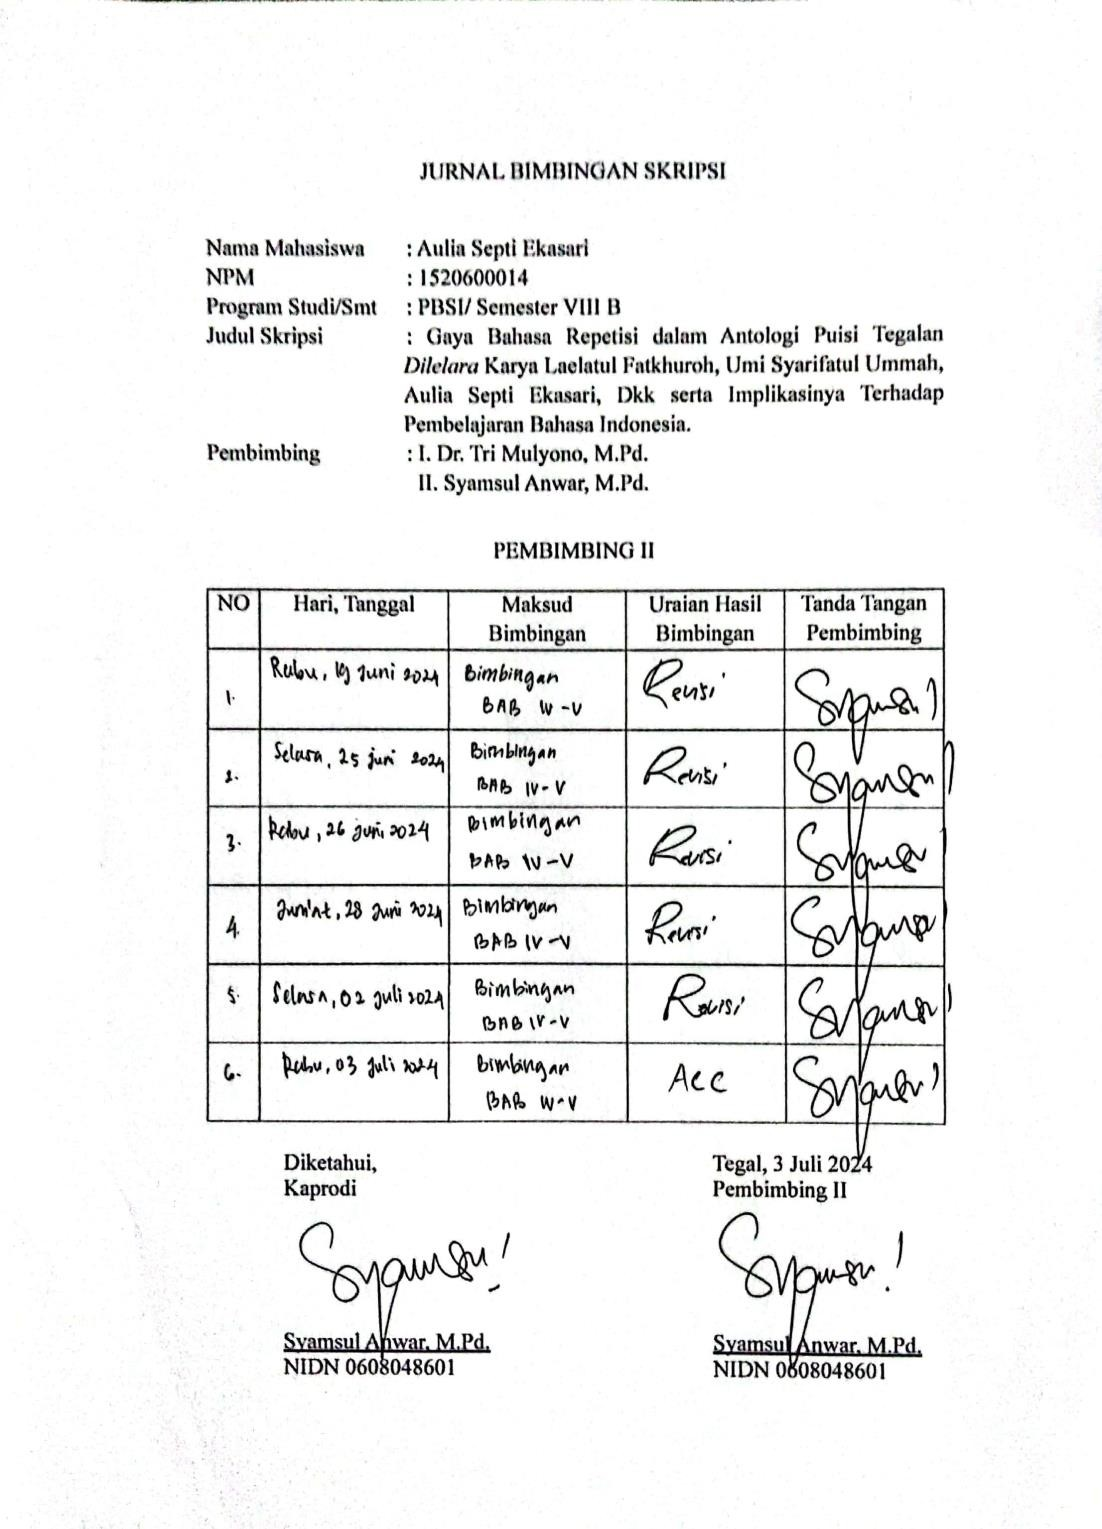 JURNAL BIMBINGAN SKRIPSI
Nama Mahasiswa : Aulia Septi Ekasari
NPM : 1520600014
Program Studi/Smt : PBSI/ Semester VIII B
Judul Skripsi : Gaya Bahasa Repetisi dalam Antologi Puisi Tegalan
Dilelara Karya Laelatul Fatkhuroh, Umi Syarifatul Ummah,
Aulia Septi Ekasari, Dkk serta Implikasinya Terhadap
Pembelajaran Bahasa Indonesia.
Pembimbing : I. Dr. Tri Mulyono, M.Pd.
II. Syamsul Anwar, M.Pd.
PEMBIMBING II
NO Hari, Tanggal Maksud Bimbingan Uraian Hasil Bimbingan Tanda Tangan Pembimbing
1. Rabu, 19 Juni 2024 Bimbingan BAB IV-V Revisi Syamsu!
2. Selasa, 25 juni 2024 Bimbingan BAB IV-V Revisi Syamsu!
3. Rabu, 26 juni 2024 Bimbingan BAB IV-V Revisi Syamsu!
4. Jum'at, 28 Juni 2024 Bimbingan BAB IV-V Revisi Syamsu!
5. Selasa, 02 Juli 2024 Bimbingan BAB IV-V Revisi Syamsu!
6. Rabu, 03 Juli 2024 Bimbingan BAB IV-V ACC Syamsu!
Diketahui,
Kaprodi
Syamsu!
Syamsul Anwar, M.Pd.
NIDN 0608048601
Tegal, 3 Juli 2024
Pembimbing II
Syamsu!
Syamsul Anwar, M.Pd.
NIDN 0608048601